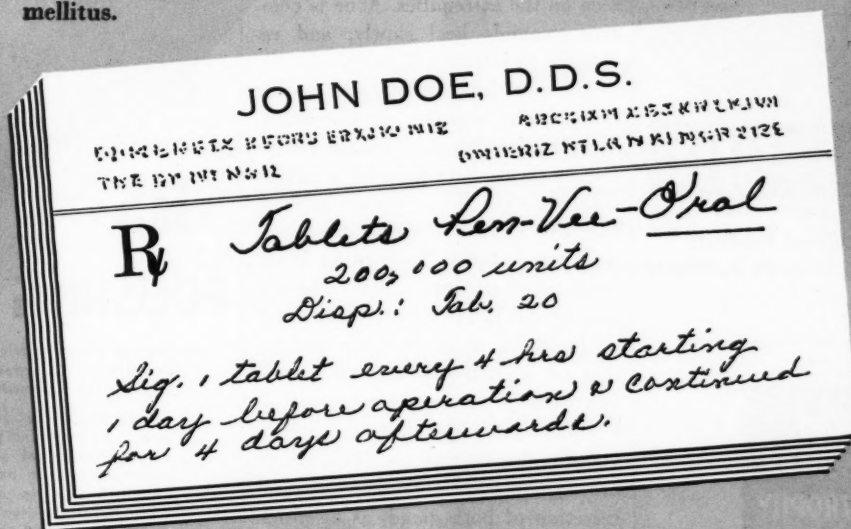 mellitus.
JOHN DOE, D.D.S.
℞ Tablets Pen-Vee-Oral
200,000 units
Disp.: Tab. 20
Sig. 1 tablet every 4 hrs starting
1 day before operation & continued
for 4 days afterwards.